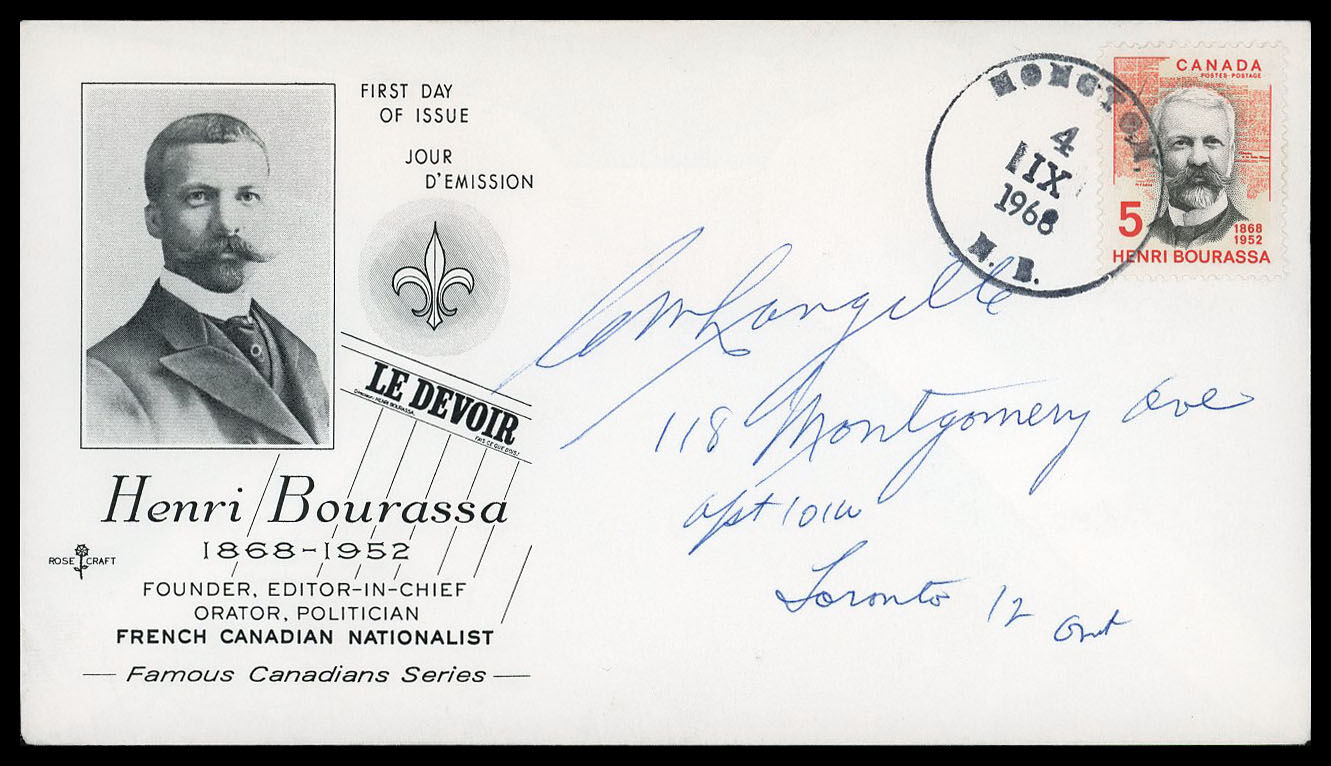 FIRST DAY
OF ISSUE
JOUR
D'EMISSION
LE DEVOIR
Directeur: HENRI BOURASSA
FAIS CE QUE DOIS!
Henri Bourassa
1868-1952
ROSE CRAFT
FOUNDER, EDITOR-IN-CHIEF
ORATOR, POLITICIAN
FRENCH CANADIAN NATIONALIST
Famous Canadians Series
MONCTON
4
IX
1968
N. B.
CANADA
POSTES-POSTAGE
5
1868
1952
HENRI BOURASSA
Langille
118 Montgomery Ave
apt
Toronto 12
Ont